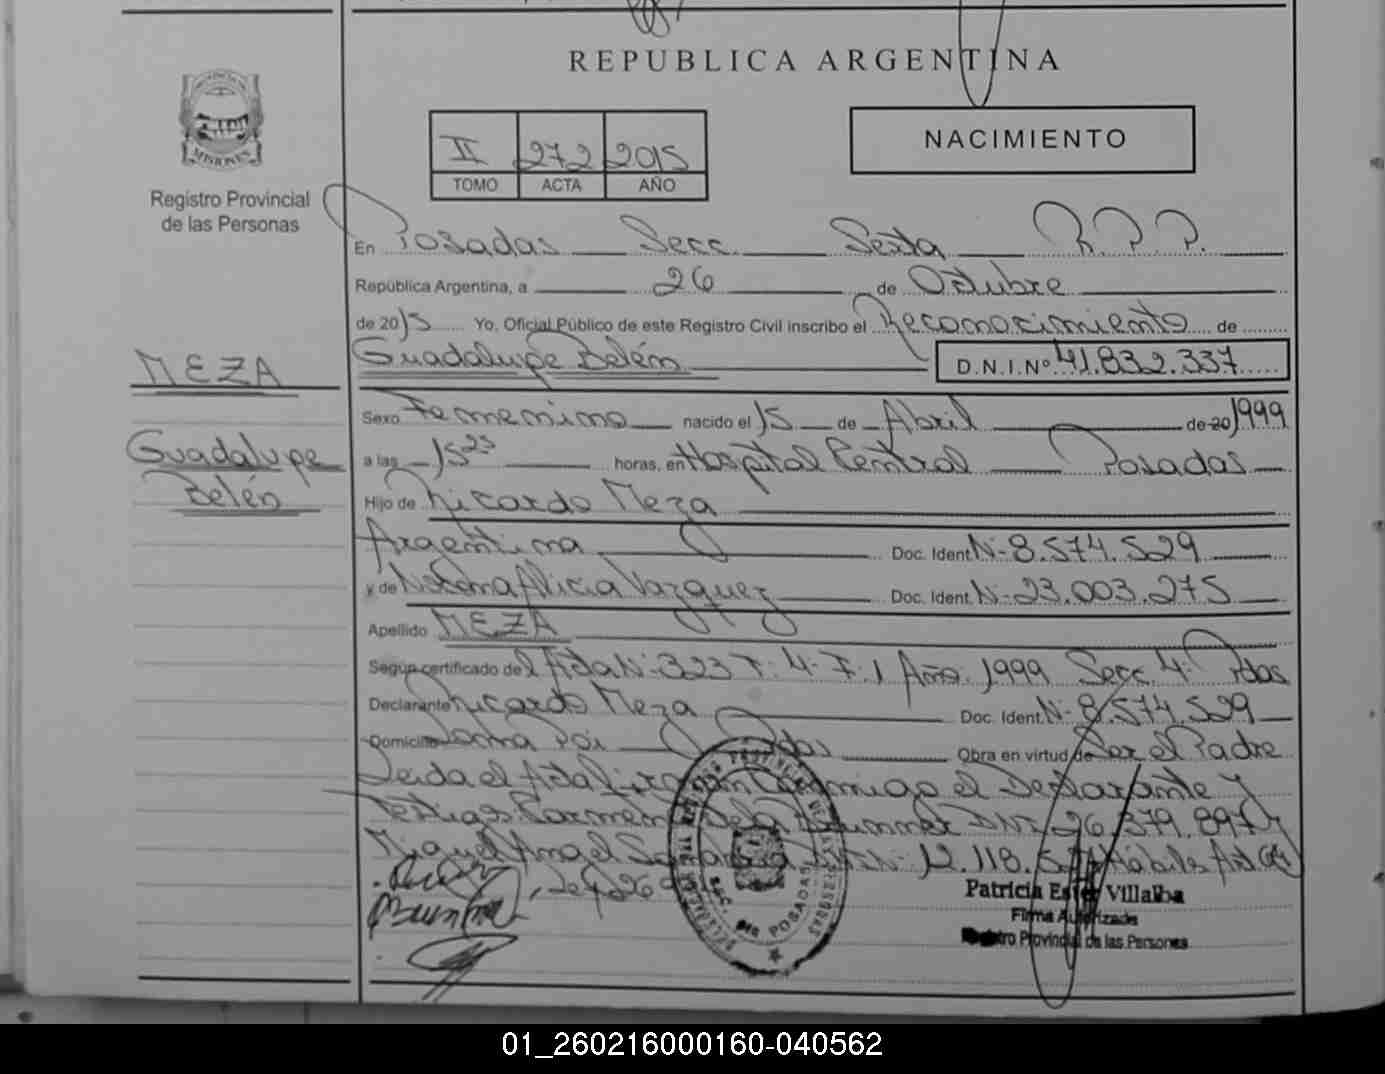 REPUBLICA ARGENTINA
MISIONES
Registro Provincial
de las Personas
II 272 2015
TOMO ACTA AÑO
NACIMIENTO
En Posadas Secc. Sexta R.P.P.
República Argentina, a 26 de Octubre
de 2015 Yo, Oficial Público de este Registro Civil inscribo el Reconocimiento de
Guadalupe Belén D.N.I.Nº 41.832.337
MEZA
Guadalupe
Belén
Sexo Femenino nacido el 15 de Abril de 20 1999
a las 15 25 horas, en Hospital Central Posadas
Hijo de Ricardo Meza
Argentina Doc. Ident. N- 8.574.529
y de Norma Alicia Vazquez Doc. Ident. N- 23.003.275
Apellido MEZA
Según certificado del Acta N- 323 T: 4- F: 1 Año: 1999 Secc. 4- Pdas
Declarante Ricardo Meza Doc. Ident. N- 8.574.529
Domicilio Pdas Obra en virtud de Ser el Padre
Leida el Acta firman Conmigo el Declarante y
Testigos Carmen Brunner DNI 26.379.897 y
Miguel Angel DNI N- 12.118. Hábiles
SECC. 6ta POSADAS
Patricia Ester Villalba
Firma Autorizada
Registro Provincial de las Personas
01_260216000160-040562